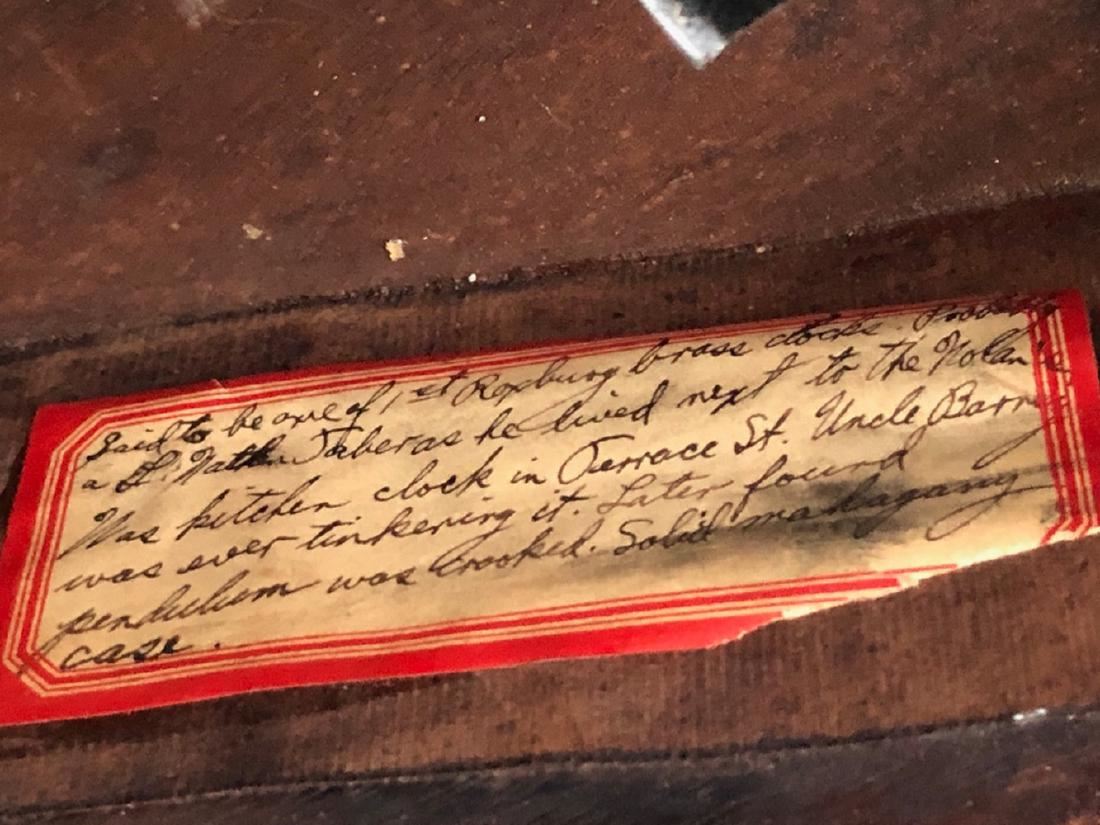 Said to be one of 1st Roxbury brass clocks. Probably
a Taber as he lived next to the Nolan's
Was kitchen clock in Terrace St. Uncle Barney
was ever tinkering it. Later found
pendulum was crooked. Solid mahagany
case.